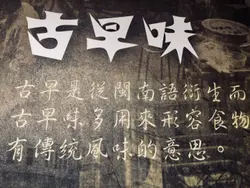 古早味
古早是從閩南語衍生而
古早味多用來形容食物
有傳統風味的意思。